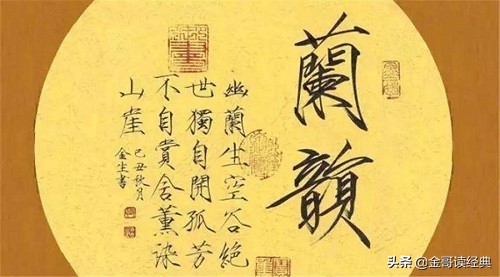 蘭韻
幽蘭生空谷絕
世獨自開孤芳
不自賞含薰染
山崖
己丑秋月
金生書
头条 @金哥读经典